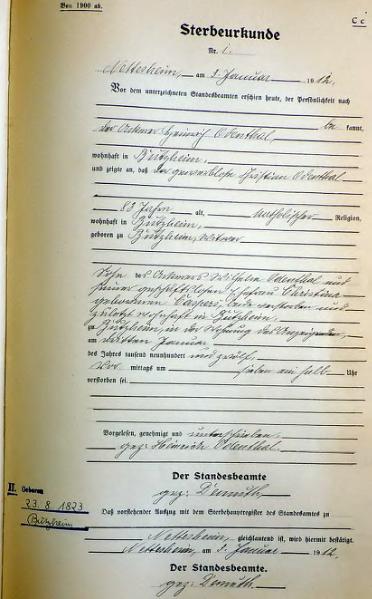 Bon. 1900 ab.
C c
Sterbeurkunde
Nr. 1.
Nettesheim, am 3. Januar 1912.
Vor dem unterzeichneten Standesbeamten erschien heute, der Persönlichkeit nach
be kannt,
der Ackerer Heinrich Odenthal,
wohnhaft in Butzheim,
und zeigte an, daß der gewerblose Christian Odenthal
88 Jahre alt, katholischer Religion,
wohnhaft in Butzheim,
geboren zu Butzheim, Witwer
Sohn des Ackerers Wilhelm Odenthal und
seiner geschäftslosen Ehefrau Christina
geborenen Caspers, beide verstorben und
zuletzt wohnhaft in Butzheim.
zu Butzheim in der Wohnung des Anzeigenden,
am dritten Januar
des Jahres tausend neunhundert und zwölf
Vor mittags um sieben ein halb Uhr
verstorben sei.
Vorgelesen, genehmigt und unterschrieben.
gez. Heinrich Odenthal.
Der Standesbeamte
gez. Demuth.
II. Geboren
23. 8. 1823
Butzheim
Daß vorstehender Auszug mit dem Sterbehauptregister des Standesamtes zu
Nettesheim, gleichlautend ist, wird hiermit bestätigt.
Nettesheim, am 3. Januar 1912.
Der Standesbeamte.
gez. Demuth.